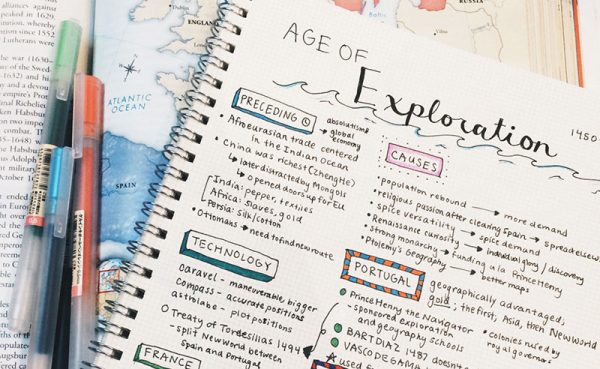 alliances against
speaking in 1529.
war (1630-
1632) and
and a devou
empire
Final Richelieu
Habsburg
combat. The
(1635-1648)
October
ended
Habsburg
ENGLAND
ATLANTIC
OCEAN
SPAIN
RUSSIA
AGE OF
Exploration
1450-
PRECEDING
absolutism &
→ global
economy
• Afroeurasian trade centered
in the Indian Ocean
• China was richest (Zhenghe)
↳ later distracted by Mongols
↳ opened doors up for EU
India: pepper, textiles
Africa: slaves, gold
Persia: silk/cotton
• Ottomans → need to find new route
CAUSES
• population rebound → more demand
• religious passion after clearing Spain → spread elsew
• spice versatility → spice demand
• Renaissance curiosity → individual glory / discovery
• strong monarchy → funding a la Prince Henry
• Ptolemy's Geography → better maps
TECHNOLOGY
caravel - maneuverable, bigger
compass - accurate positions
astrolabe - plot positions
O Treaty of Tordesillas 1494
- split New World between
Spain and Portugal
PORTUGAL
geographically advantaged,
gold; the first, Asia, then New World
• Prince Henry the Navigator
- sponsored exploration
and geography schools
• BART DIAZ 1487 doesn't
• VASCO DE GAMA
used f
• colonies rused by
royal governors
FRANCE